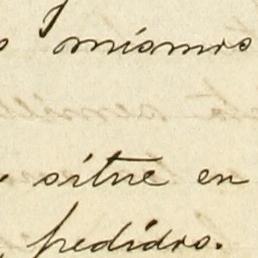 mismos
sitúe en
pedidos.